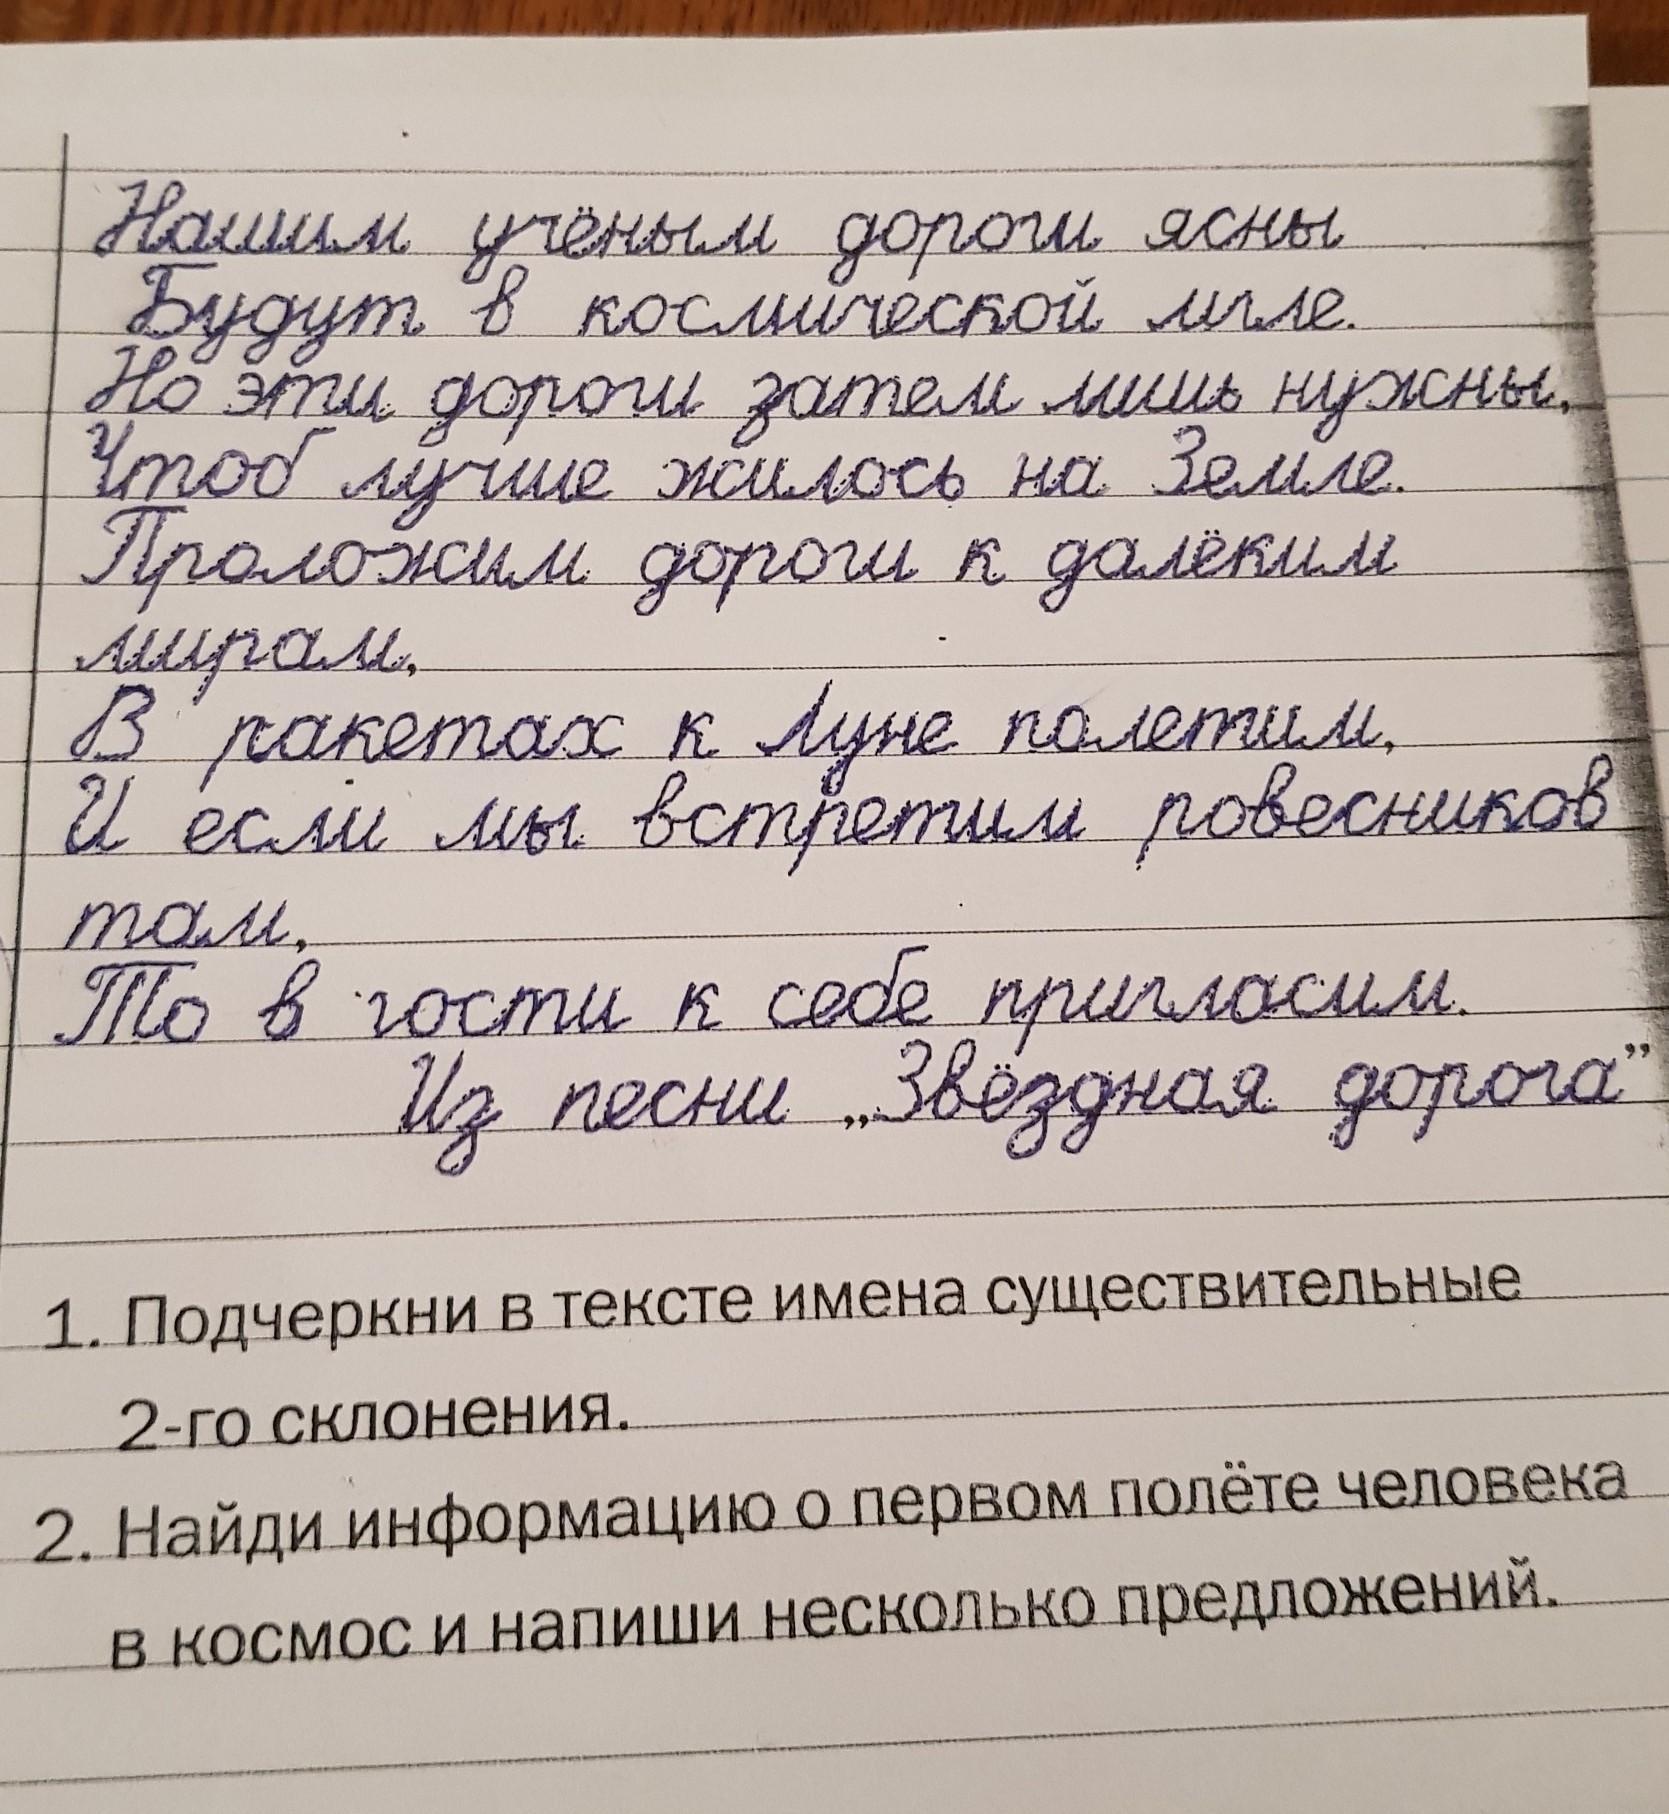 Нашим учёным дороги ясны
Будут в космической мгле.
Но эти дороги затем лишь нужны,
Чтоб лучше жилось на Земле.
Проложим дороги к далёким
мирам,
В ракетах к Луне полетим,
И если мы встретим ровесников
там,
То в гости к себе пригласим.
Из песни „Звёздная дорога”
1. Подчеркни в тексте имена существительные
2-го склонения.
2. Найди информацию о первом полёте человека
в космос и напиши несколько предложений.